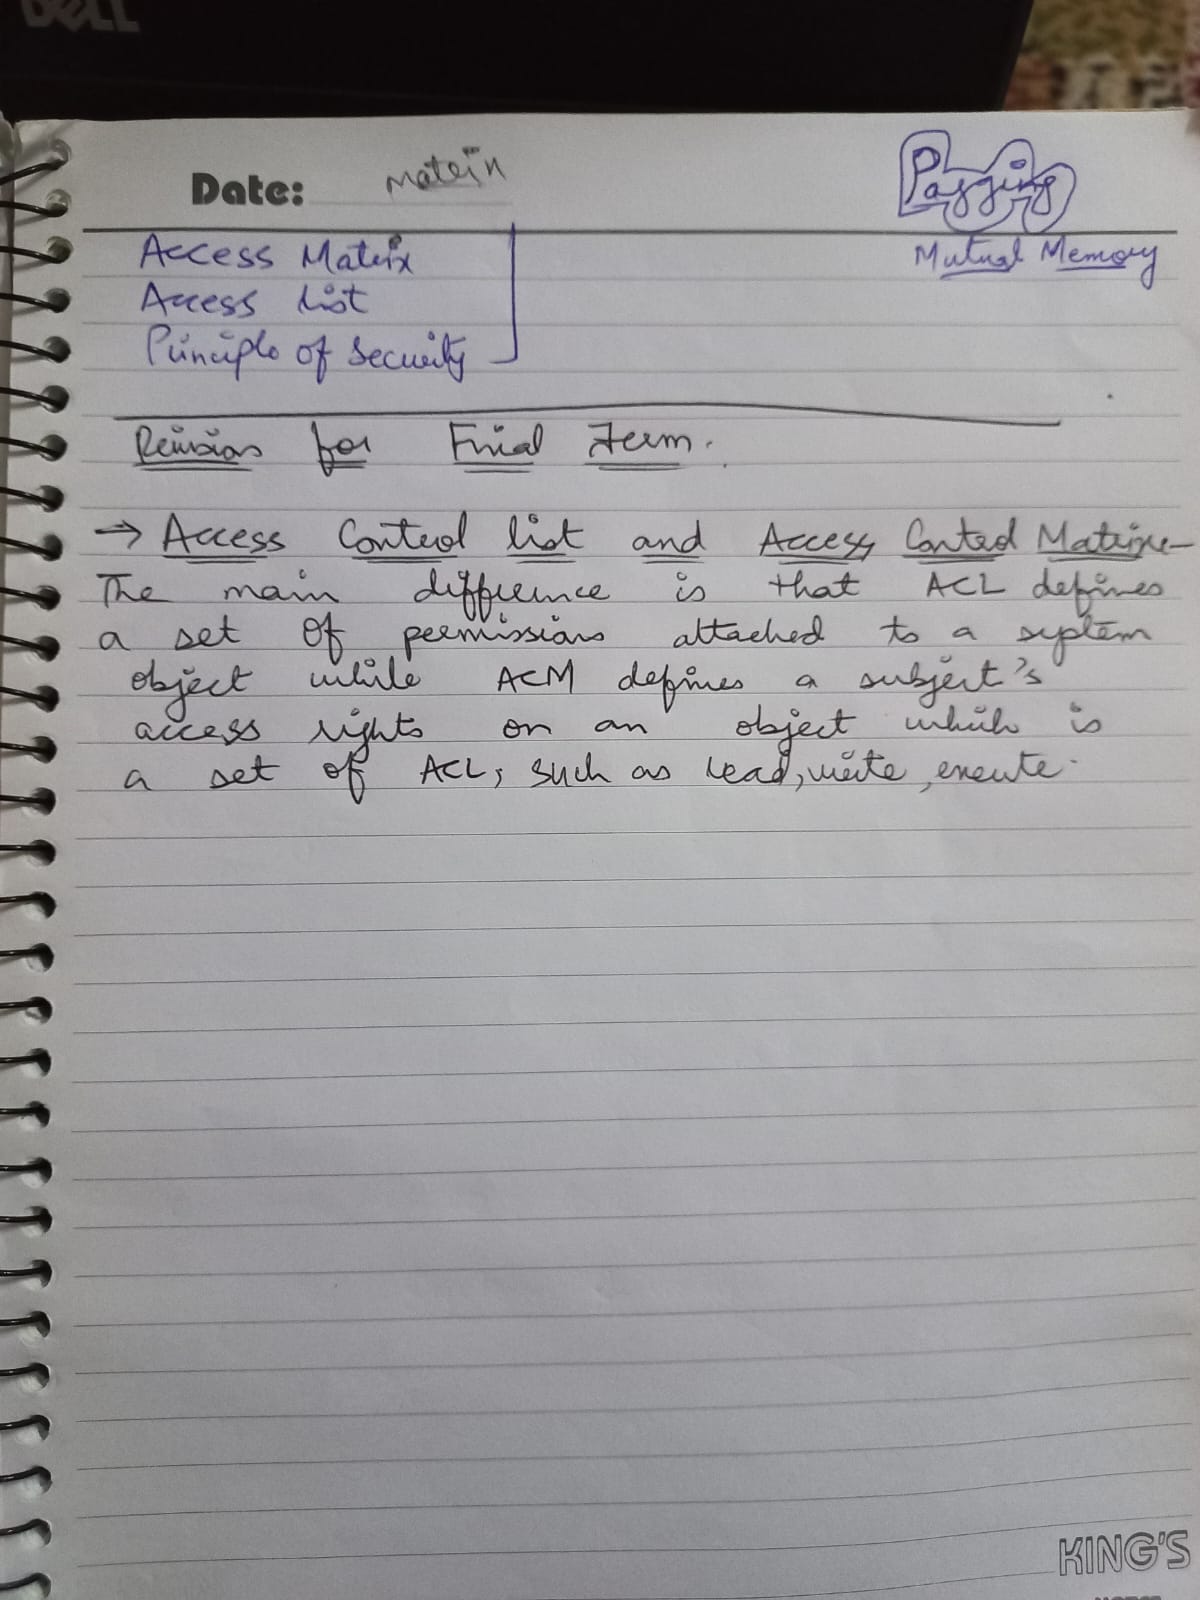 DELL
Date: matein
Pagging
Mutual Memory
Access Matrix
Access list
Principle of Security
Revision for Final Term.
→ Access Control list and Access Control Matrix-
The main difference is that ACL defines
a set of permissions attached to a system
object while ACM defines a subject's
access rights on an object which is
a set of ACL, such as read, write, execute.
KING'S